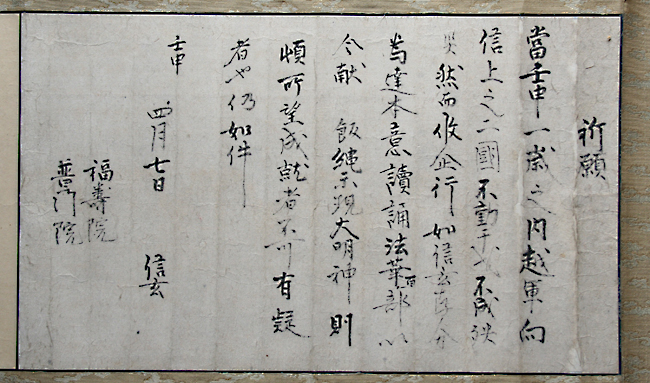 祈願
當壬申一歳之内越軍向
信上之二國不動干戈不成殃
災然而作企行如信玄存分
為達本意讀誦法華百部以
令献 飯縄示現大明神則
頓所望成就者不可有疑
者也仍如件
壬申
四月七日 信玄
福壽院
普門院